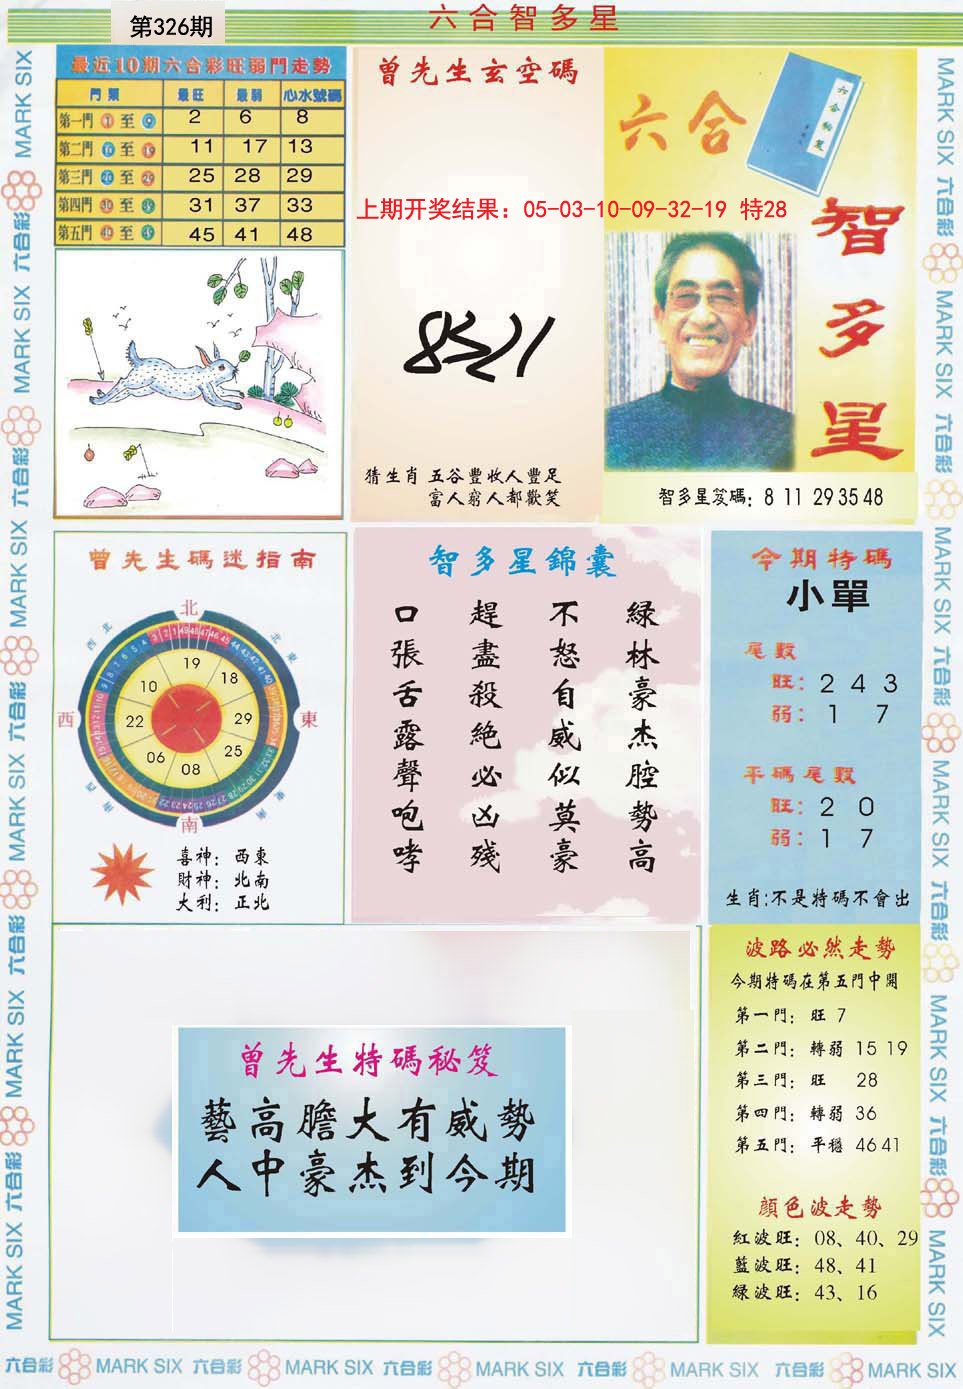 第326期
六合智多星
最近10期六合彩旺弱門走勢
門類 最旺 最弱 心水號碼
第一門 1 至 9 2 6 8
第二門 10 至 19 11 17 13
第三門 20 至 29 25 28 29
第四門 30 至 39 31 37 33
第五門 40 至 49 45 41 48
曾先生玄空碼
上期开奖结果：05-03-10-09-32-19 特28
猜生肖 五谷豐收人豐足
富人窮人都歡笑
六合
智多星
智多星笈碼：8 11 29 35 48
曾先生碼迷指南
北
西北
北東
西
東
西南
東南
南
19
18
29
25
08
06
22
10
喜神：西東
財神：北南
大利：正北
智多星錦囊
綠林豪杰腔勢高
不怒自威似莫豪
趕盡殺絕必凶殘
口張舌露聲咆哮
今期特碼
小單
尾數
旺：2 4 3
弱：1 7
平碼尾數
旺：2 0
弱：1 7
生肖:不是特碼不會出
曾先生特碼秘笈
藝高膽大有威勢
人中豪杰到今期
波路必然走勢
今期特碼在第五門中開
第一門：旺 7
第二門：轉弱 15 19
第三門：旺 28
第四門：轉弱 36
第五門：平穩 46 41
顔色波走勢
紅波旺：08、40、29
藍波旺：48、41
綠波旺：43、16
六合彩 MARK SIX 六合彩 MARK SIX 六合彩 MARK SIX 六合彩 MARK SIX 六合彩 MARK SIX